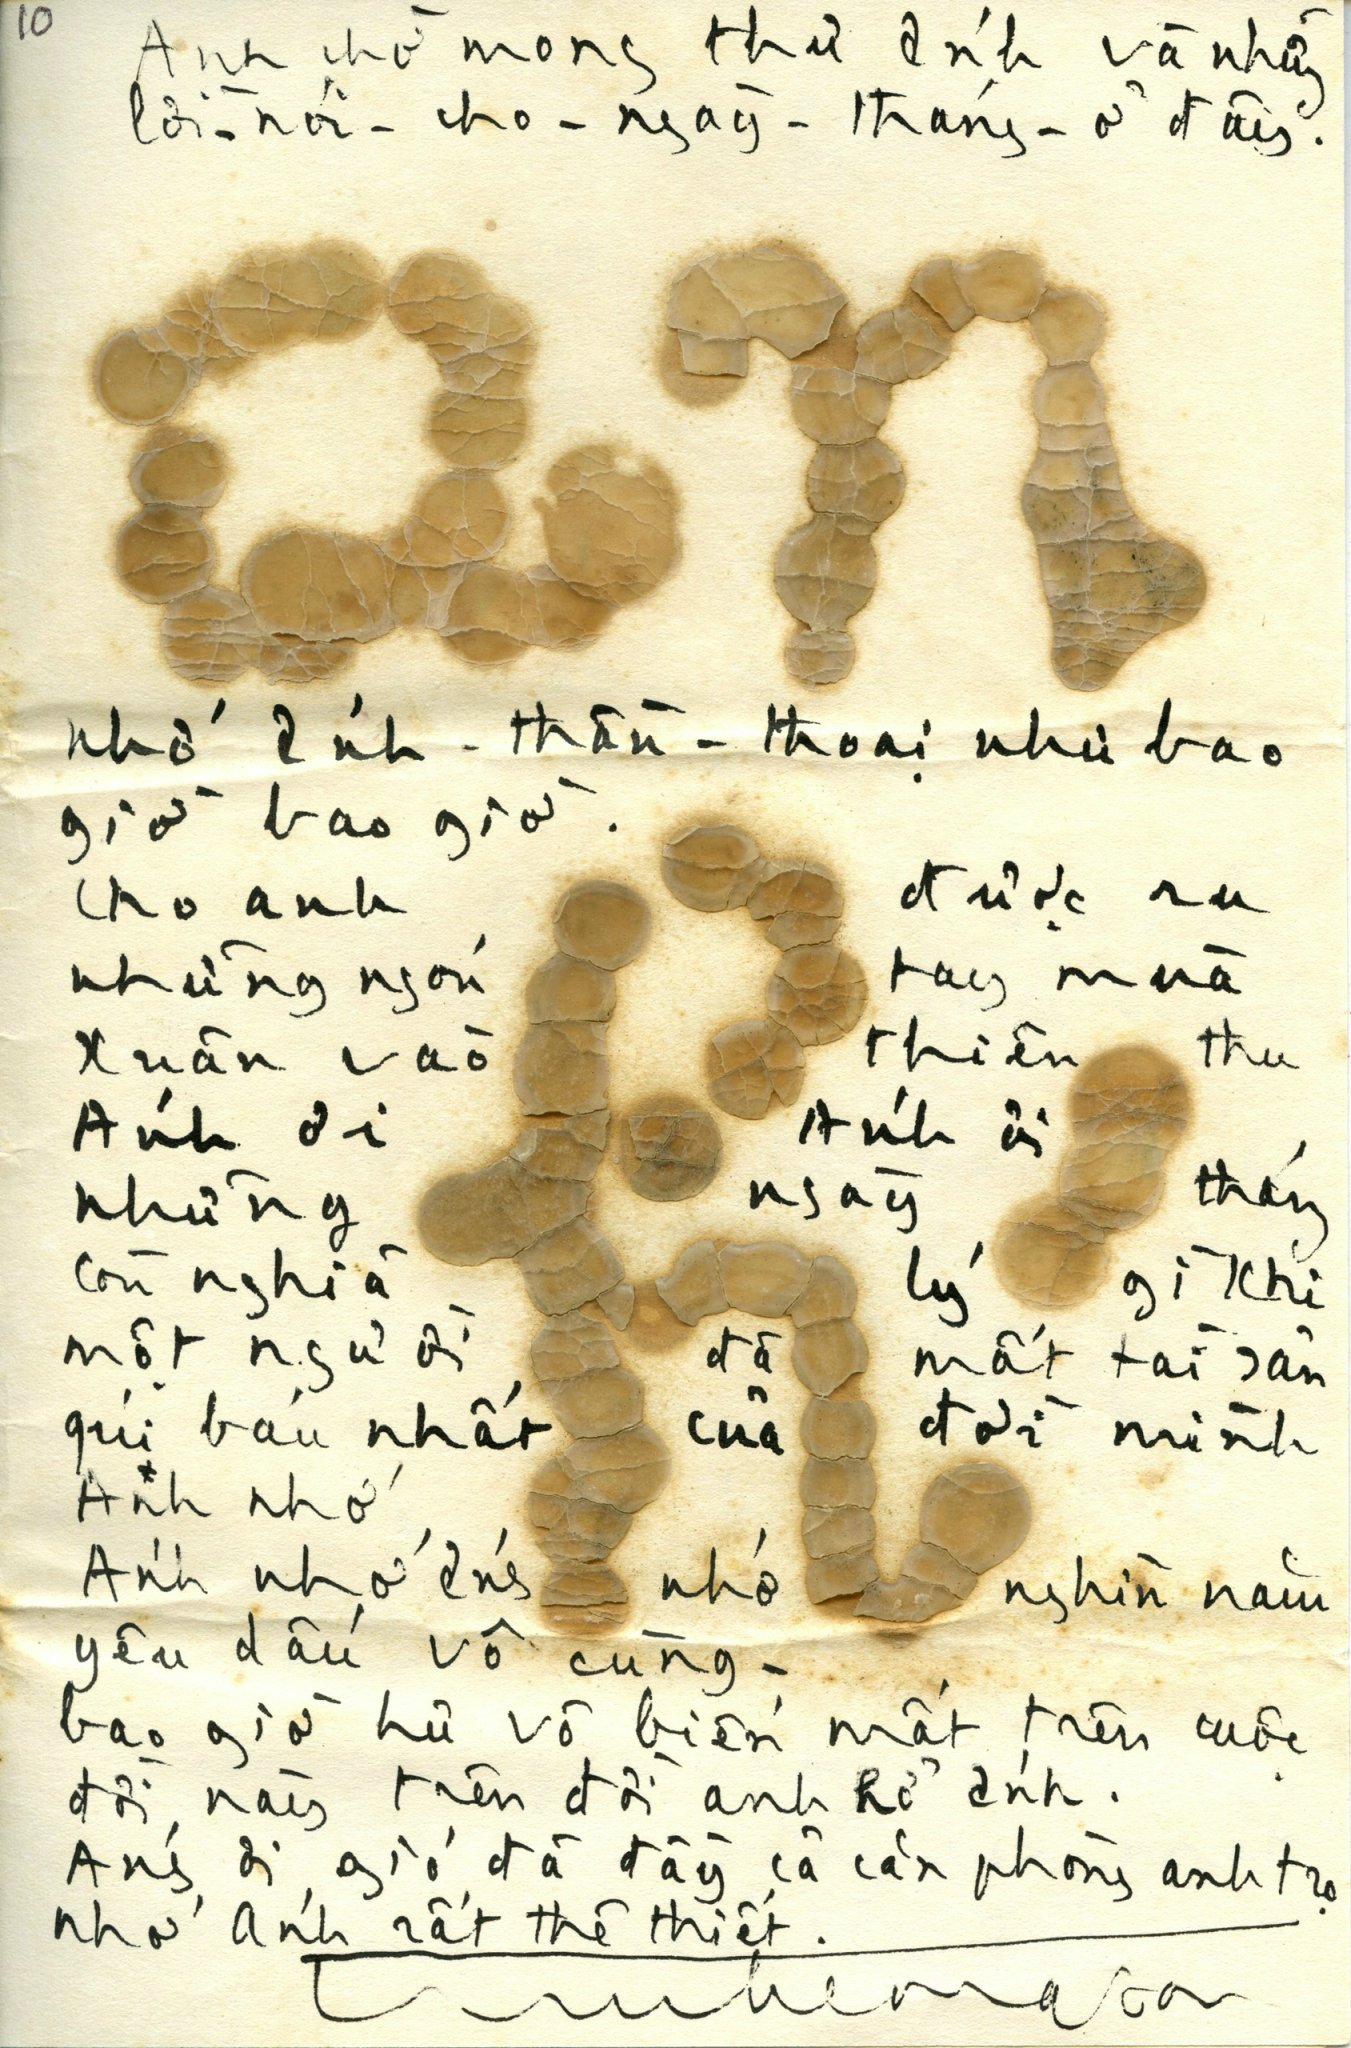 10
Anh chờ mong thư Ánh và những
lời-nói-cho-ngày-tháng-ở đây.
an
nhớ Ánh-thần-thoại như bao
giờ bao giờ.
Cho anh được ru
những ngón tay mùa
Xuân vào thiên thu
Ánh ơi Ánh ơi
những ngày tháng
còn nghĩa lý gì khi
một người đã mất tài sản
quí báu nhất của đời mình
Anh nhớ
Anh nhớ Ánh nhớ nghìn năm
yêu dấu vô cùng-
bao giờ hư vô biến mất trên cuộc
đời này trên đời anh hở Ánh.
Ánh ơi gió đã đầy cả căn phòng anh trọ
nhớ Ánh rất thê thiết.
Trinhcongson